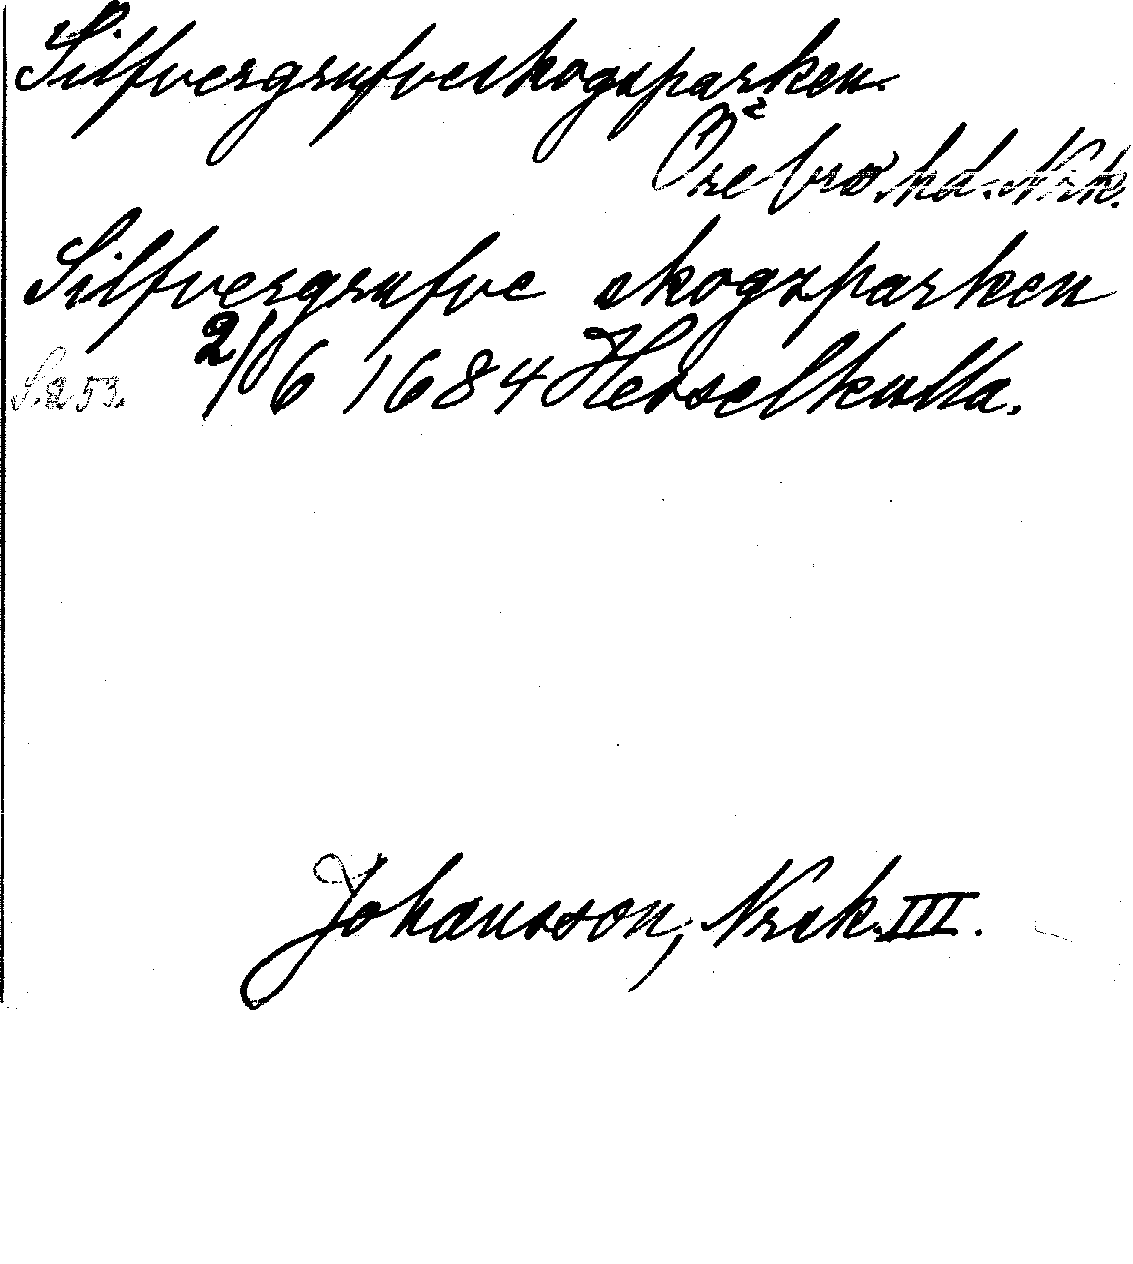 Silfvergrufveskogsparken.
Örebro hd. Nrk.
Silfvergrufve skogsparken
S. 253. 2/6 1684 Hesselkulla.
Johansson, Nrk. III.